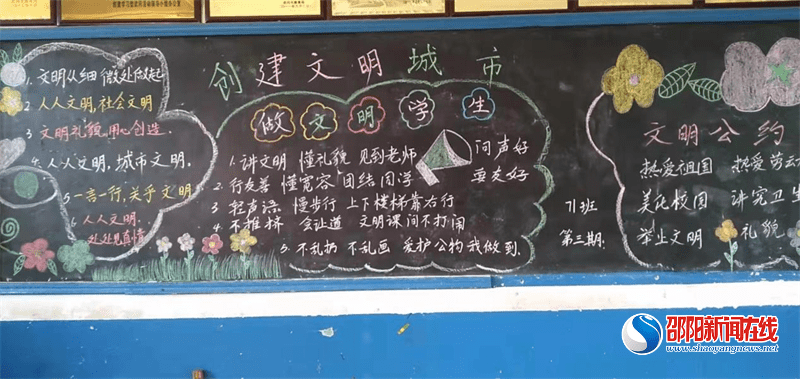 创建文明城市
1. 文明从细微处做起
2 人人文明,社会文明
3 文明礼貌,用心创造.
4. 人人文明,城市文明.
5 一言一行,关乎文明
6 人人文明.
处处见真情
做文明学生
1. 讲文明 懂礼貌 见到老师 问声好
2 行友善 懂宽容 团结同学 要友好
3 轻声语 慢步行 上下楼梯靠右行
4 不推挤 会让道 文明课间不打闹
5. 不乱扔 不乱画 爱护公物我做到.
71班
第三期:
文明公约
热爱祖国 热爱劳动
美化校园 讲究卫生
举止文明 礼貌
邵阳新闻在线
www.shaoyangnews.net